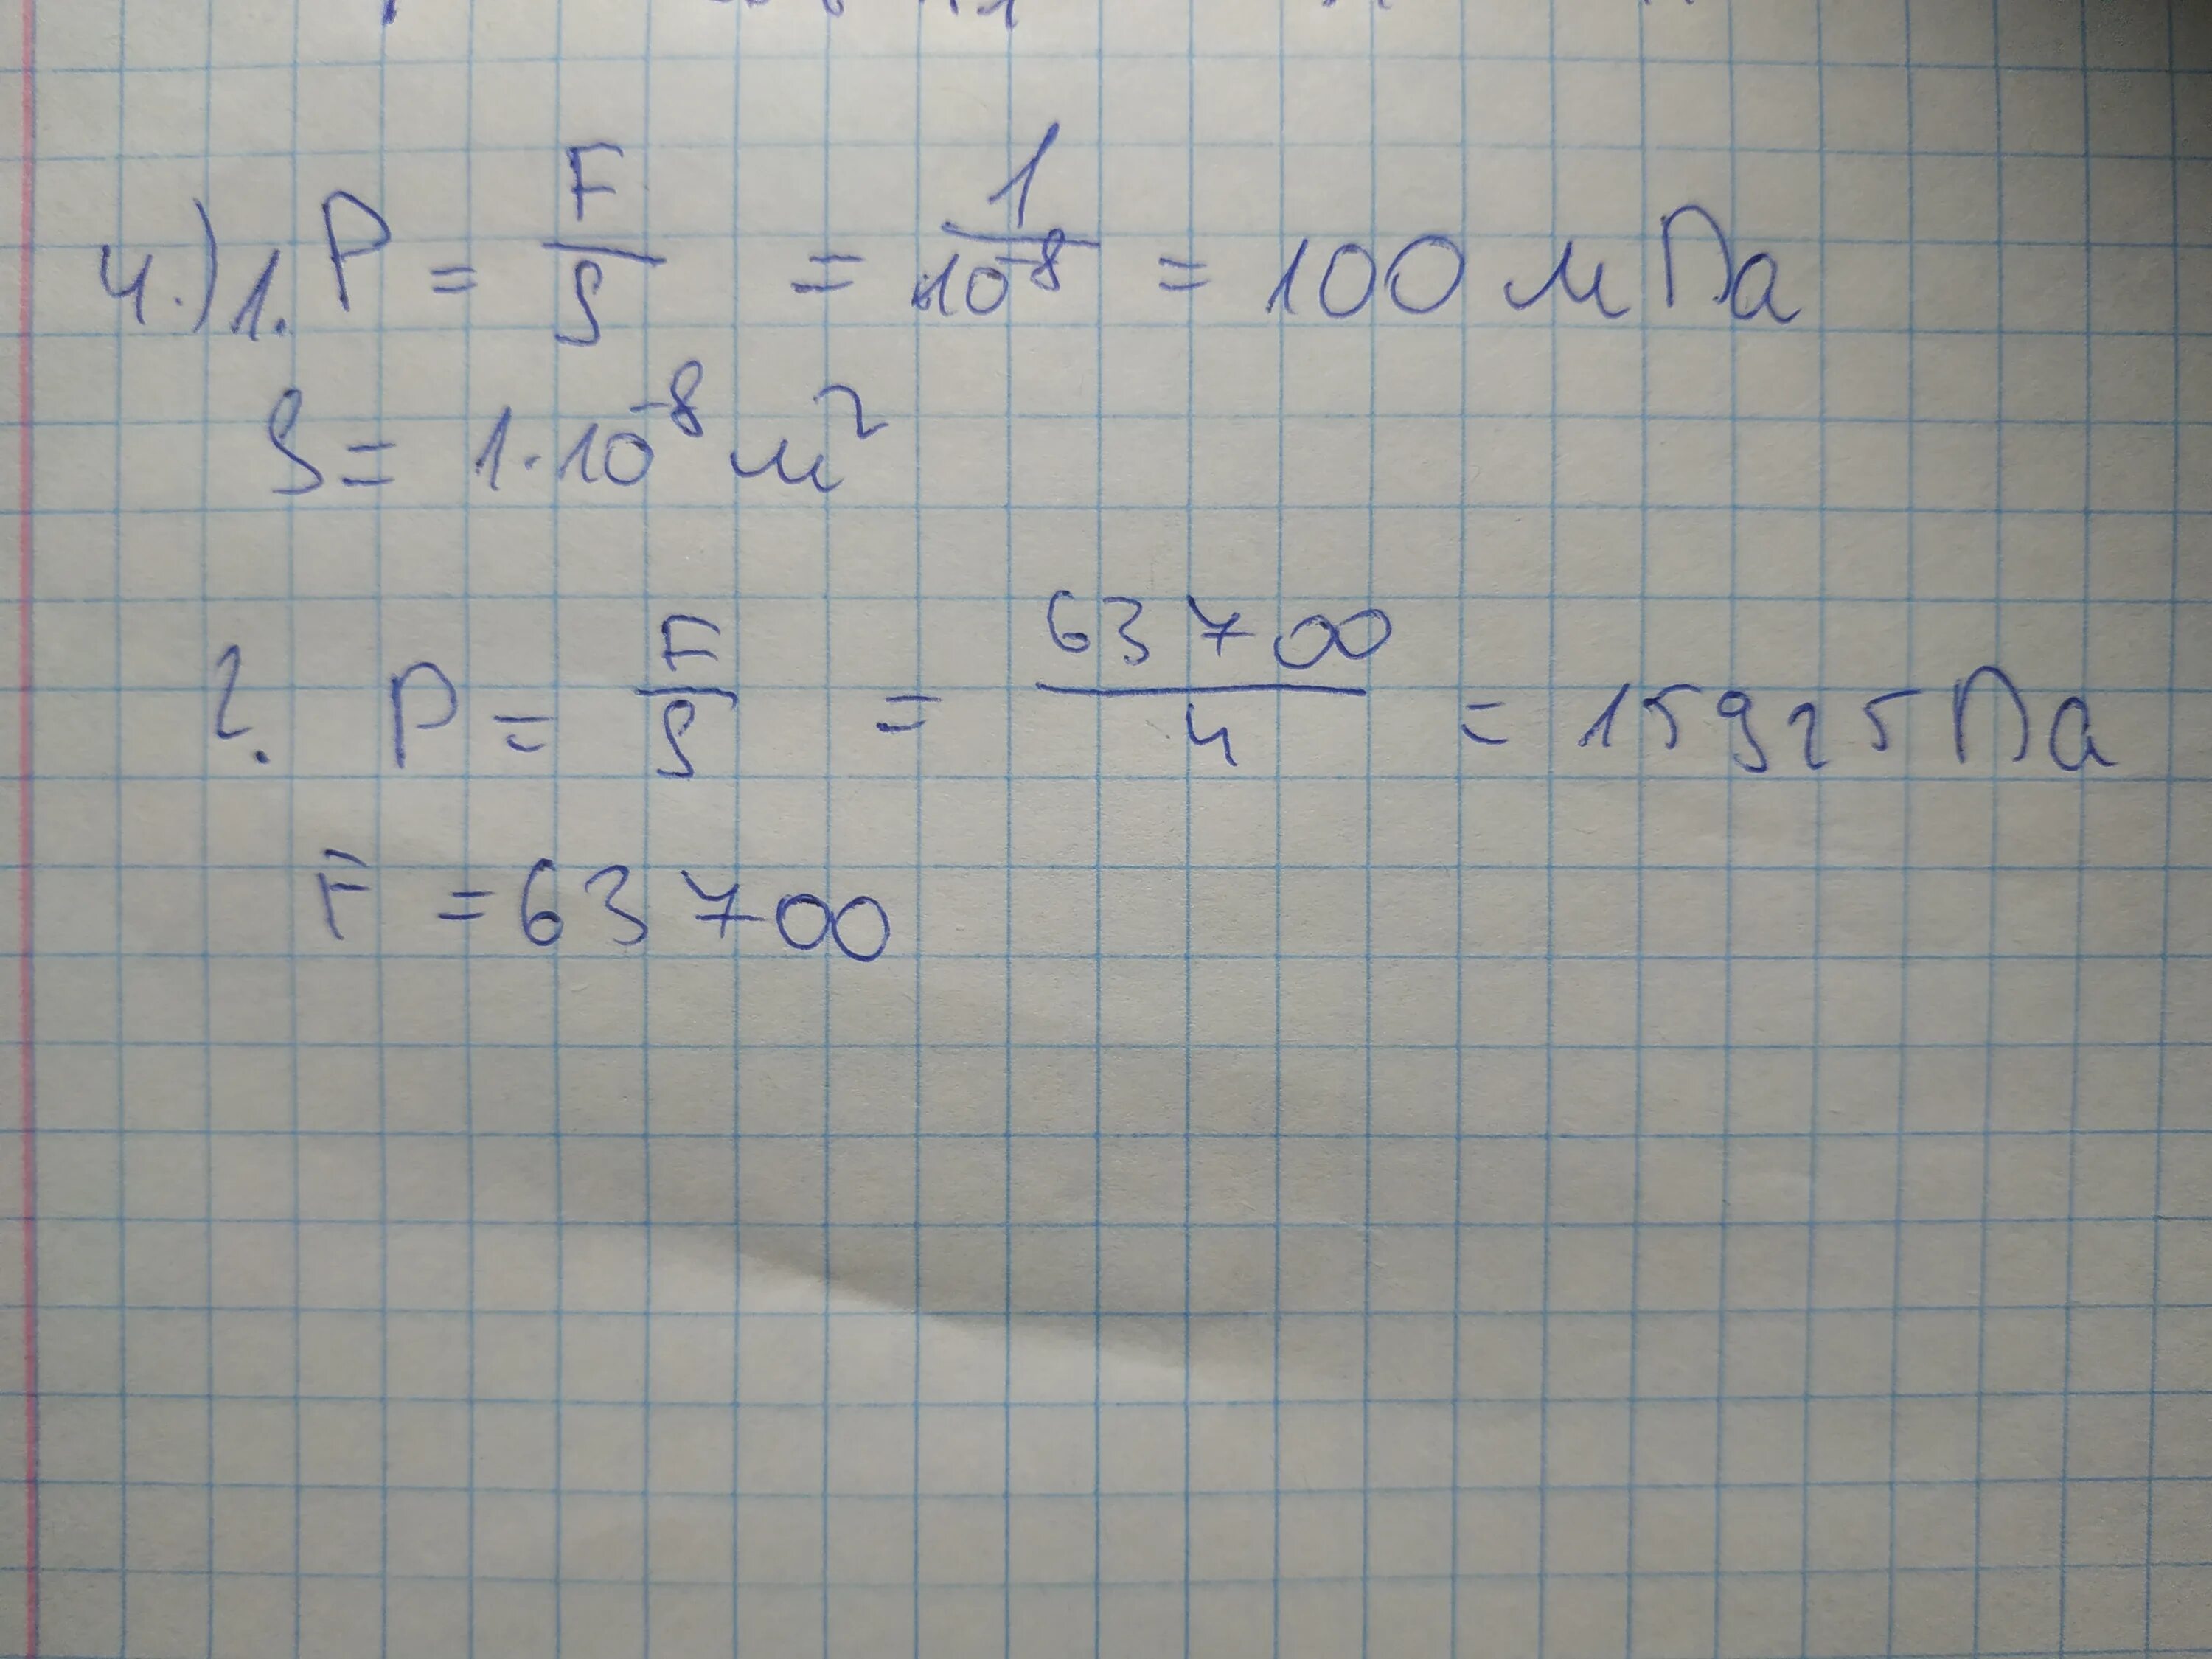 4.) 1. P = F/S = 1/10⁻⁸ = 100 мПа
S = 1·10⁻⁸ м²
2. P = F/S = 63700/4 = 15925 Па
F = 63700